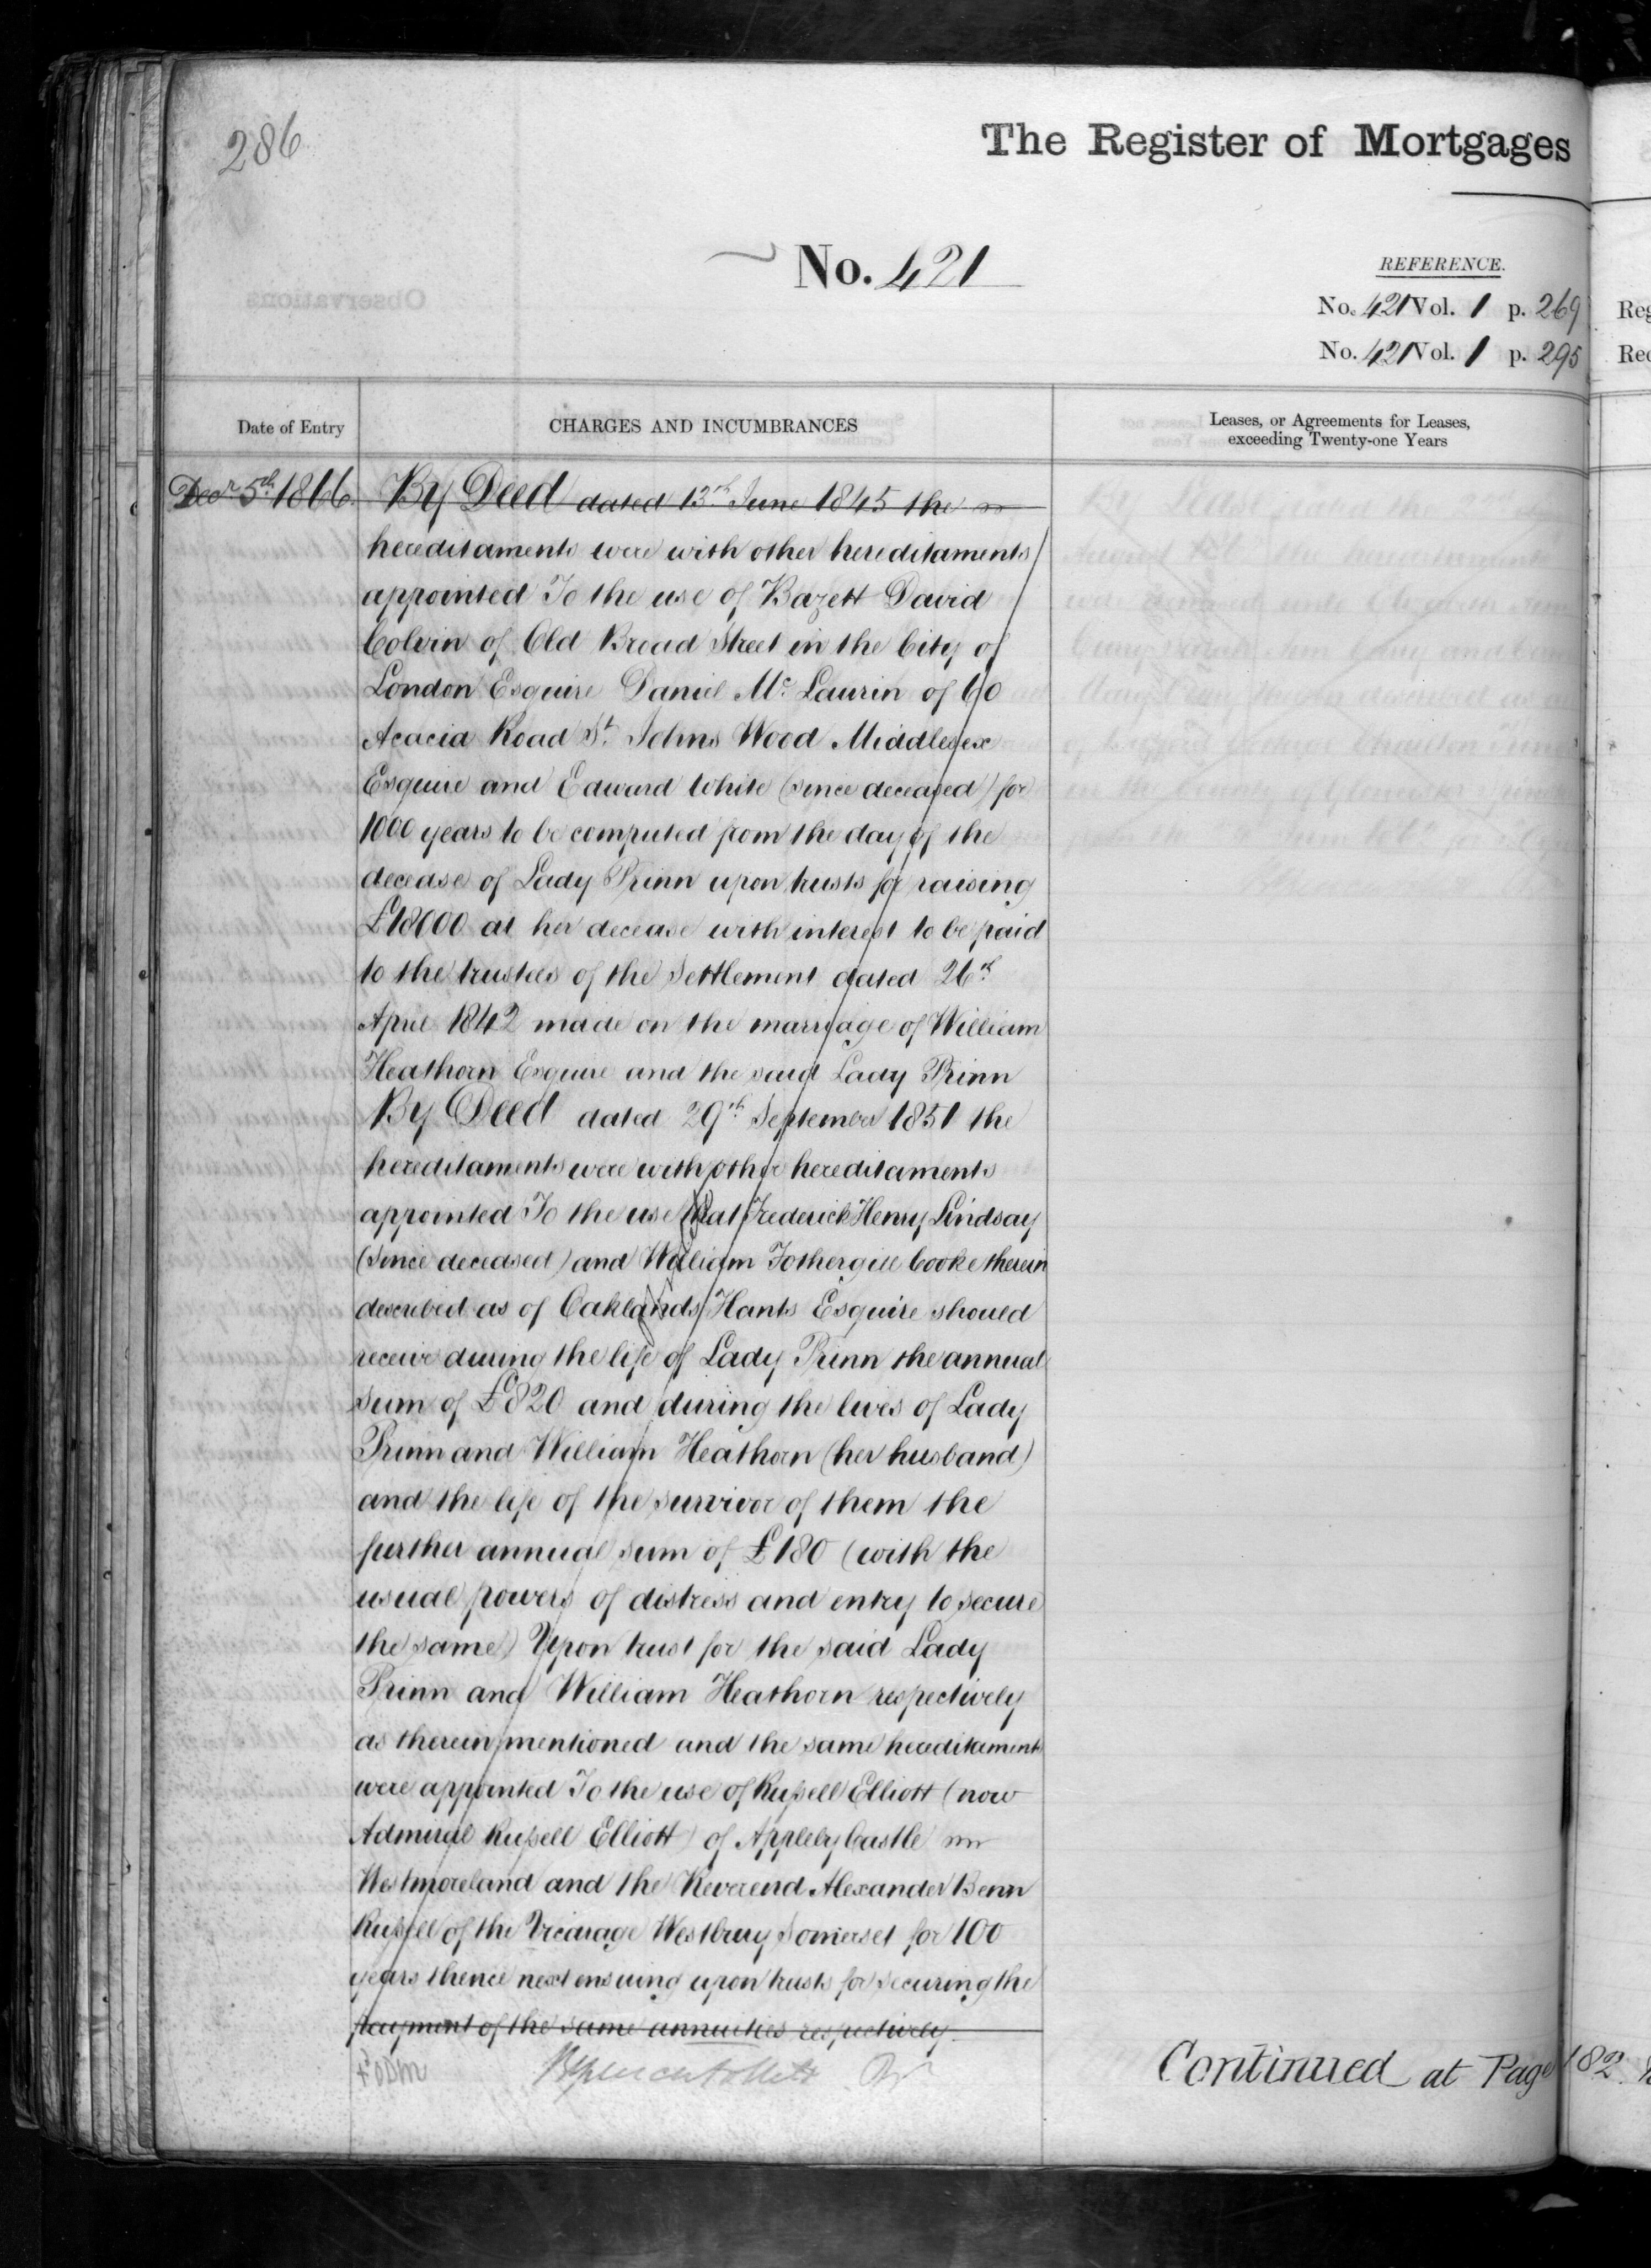 286
The Register of Mortgages
No. 421
REFERENCE.
No. 421 Vol. 1 p. 269
No. 421 Vol. 1 p. 295
Date of Entry
CHARGES AND INCUMBRANCES
Leases, or Agreements for Leases,
exceeding Twenty-one Years
Decr 5th 1866.
By Deed dated 13th June 1845 the
hereditaments were with other hereditaments
appointed To the use of Bazett David
Colvin of Old Broad Street in the City of
London Esquire Daniel Mc Laurin of 60
Acacia Road St Johns Wood Middlesex
Esquire and Edward White (since deceased) for
1000 years to be computed from the day of the
decease of Lady Prinn upon trusts for raising
£18000 at her decease with interest to be paid
to the trustees of the Settlement dated 26th
April 1842 made on the marriage of William
Heathorn Esquire and the said Lady Prinn
By Deed dated 29th September 1851 the
hereditaments were with other hereditaments
appointed To the use that Frederick Henry Lindsay
(since deceased) and William Fothergill Cooke therein
described as of Oaklands Hants Esquire should
receive during the life of Lady Prinn the annual
sum of £820 and during the lives of Lady
Prinn and William Heathorn (her husband)
and the life of the survivor of them the
further annual sum of £180 (with the
usual powers of distress and entry to secure
the same) Upon trust for the said Lady
Prinn and William Heathorn respectively
as therein mentioned and the same hereditaments
were appointed To the use of Russell Elliott (now
Admiral Russell Elliott) of Appleby Castle
Westmoreland and the Reverend Alexander Benn
Russell of the Vicarage Westbury Somerset for 100
years thence next ensuing upon trusts for securing the
payment of the same annuities respectively.
Continued at Page 182